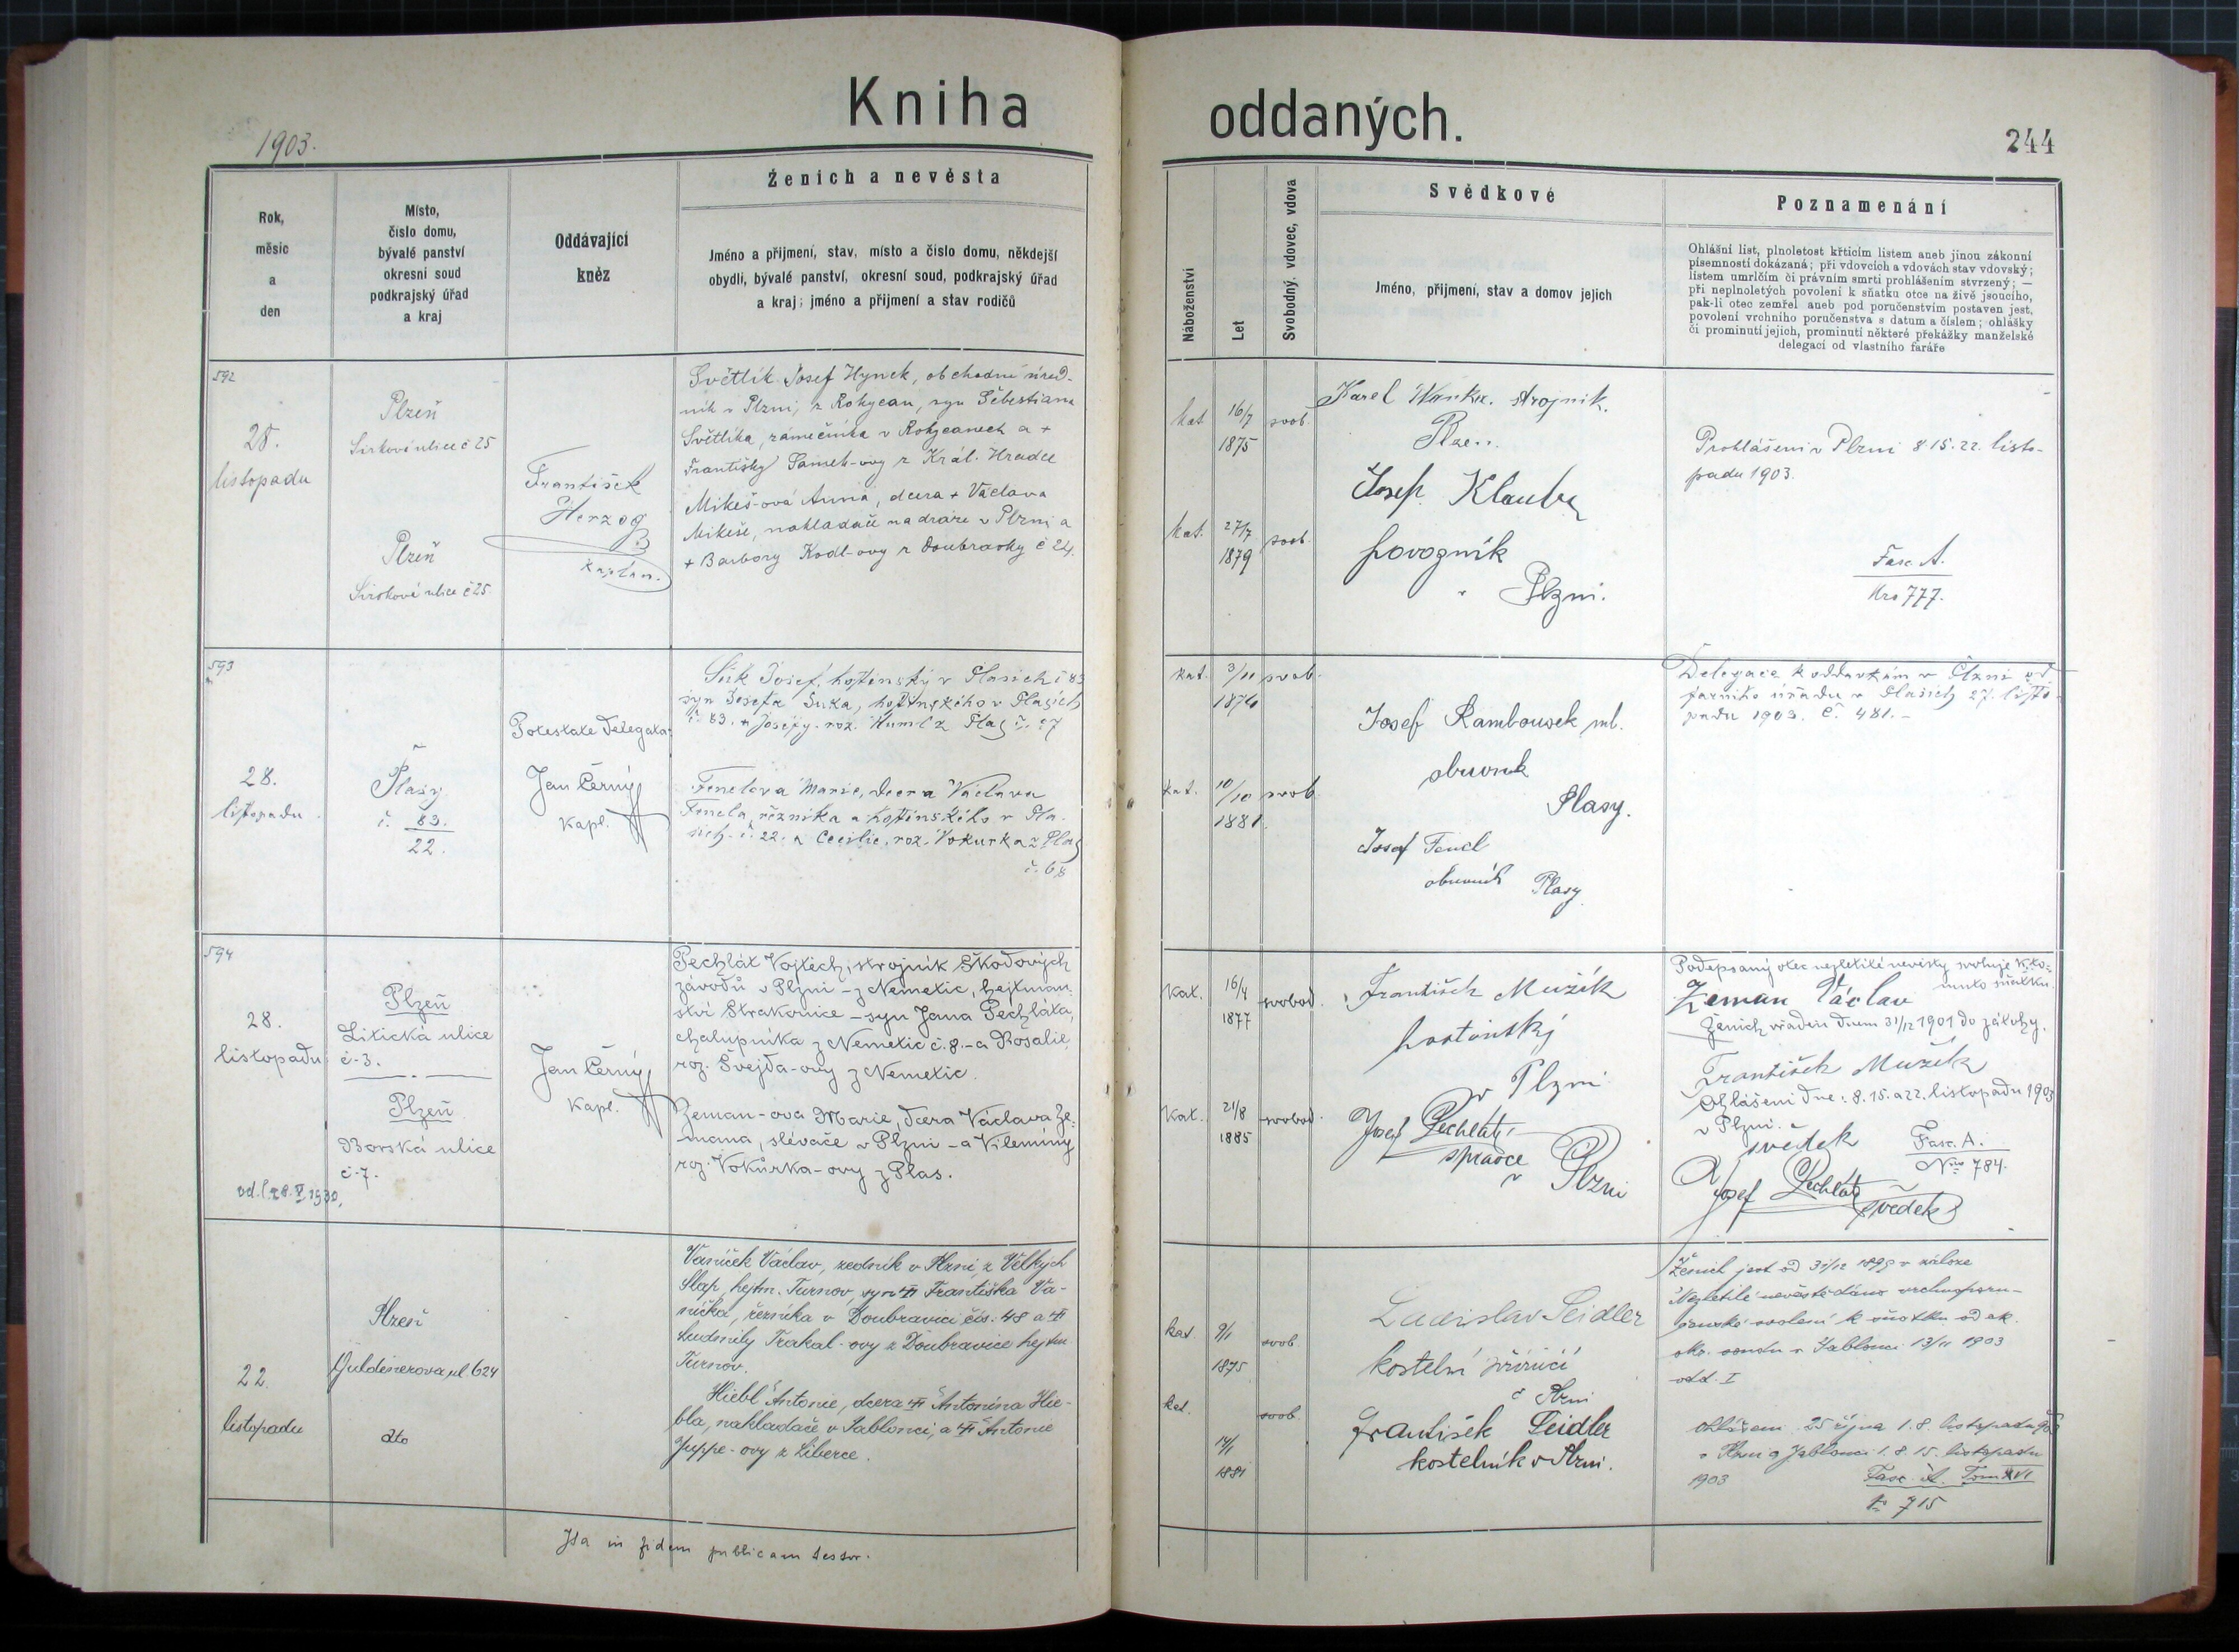 Kniha oddaných.
1903.
244
Rok,
měsíc
a
den
Místo,
číslo domu,
bývalé panství
okresní soud
podkrajský úřad
a kraj
Oddávající
kněz
Ženich a nevěsta
Jméno a přijmení, stav, místo a číslo domu, někdejší
obydlí, bývalé panství, okresní soud, podkrajský úřad
a kraj; jméno a přijmení a stav rodičů
Náboženství
Let
Svobodný, vdovec, vdova
Svědkové
Jméno, přijmení, stav a domov jejich
Poznamenání
Ohlášní list, plnoletost křticím listem aneb jinou zákonní
písemností dokázaná; při vdovcích a vdovách stav vdovský;
listem umrlčím či právním smrti prohlášením stvrzený; —
při neplnoletých povolení k sňatku otce na živě jsoucího,
pak-li otec zemřel aneb pod poručenstvím postaven jest,
povolení vrchního poručenstva s datum a číslem; ohlášky
či prominutí jejich, prominutí některé překážky manželské
delegací od vlastního faráře
592
28.
listopadu
Plzeň
ulice č 25
Plzeň
ulice č 25.
František
Herzog
kaplan.
Světlík Josef Hynek, obchodní úřed-
ník v Plzni, z Rokycan, syn Šebestiana
Světlíka, zámečníka v Rokycanech a +
Františky Samek-ovy z Král. Hradce
Mikeš-ová Anna, dcera + Václava
Mikeše, nakladače na dráze v Plzni a
+ Barbory Kodl-ovy z Doubravky č 24.
kat
16/7
1875
svob.
kat.
27/7
1879
svob.
Karel strojník.
Plzeň.
Josef Klauber
povozník
v Plzni.
Prohlášeni v Plzni 8 15. 22. listo-
padu 1903.
Fasc. A.
Nro 777.
593
28.
listopadu
Plasy
č. 83.
22.
Potestate delegata:
Jan Černý
kapl.
Suk Josef, hostinský v Plasích č 83
syn Josefa Suka, hostinského v Plasích
č. 83. a Josefy, roz. Huml z Plas č. 27
Fenclova Marie, dcera Václava
Fencla, řezníka a hostinského v Pla-
sích č. 22. a Cecilie, roz. Vokurka z Plas
č. 68
kat.
3/11
1876
svob.
kat.
10/10
1881.
svob
Josef Rambousek ml.
obuvník
Plasy.
Josef Fencl
obuvník Plasy
Delegace k oddavkám v Plzni od
farního úřadu v Plasích 27. listo-
padu 1903. č. 481.-
594
28.
listopadu
Plzeň
Litická ulice
č-3.
Plzeň
Borská ulice
č-7.
od. l. 28. V. 1930,
Jan Černý
kapl.
Pechlát Vojtěch, strojník Škodových
závodů v Plzni - z Nemetic, hejtman-
ství Strakonice - syn Jana Pechláta,
chalupníka z Nemetic č. 8. - a Rosalie,
roz. Švejda-ovy z Nemetic.
Zeman-ova Marie, dcera Václava Ze-
mana, slévače v Plzni - a Vilemíny
roz. Vokůrka-ovy z Plas.
kat.
16/4
1877
svobod.
kat.
21/8
1885
svobod.
František Mužík
hostinský
v Plzni
Josef Pechlát,
správce
v Plzni
Podepsaný otec nezletilé nevěsty svoluje k to-
muto sňatku.
Zeman Václav
Ženich vřaděn dnem 31/12 1901 do zálohy.
František Mužík
Ohlášeni dne: 8. 15. a 22. listopadu 1903
v Plzni.
svědek
Fasc. A.
Nro 784.
Josef Pechlát
svědek
22.
listopadu
Plzeň
Guldenerova ul. 624
dto
Vaníček Václav, zedník v Plzni, z Velkých
hejtm. Turnov, syn Františka Va-
níčka, řezníka v Doubravici čís. 48 a
Ludmily Trakal-ovy z Doubravice hejtm
Turnov.
Hiebl Antonie, dcera Antonína Hie-
bla, nakladače v Jablonci, a Antonie
Juppe-ovy z Liberce.
kat.
9/1
1875
svob.
kat.
14/1
1881
svob.
Ladislav Seidler
kostelní příručí
Plzni
František Seidler
kostelník v Plzni.
Ženich jest od 31/12 1895 v záloze
Nezletilé nevěstě dáno vrchnoporu-
čenské svolení k sňatku od ok.
soudu v Jablonci 13/11 1903
odd. I
Ohlášeni 25 října 1. 8. listopadu 903
v Plzni a Jablonci 1. 8. 15. listopadu
1903
Fasc. A. Tom XVI
No 715
Ita in fidem publicam testor.